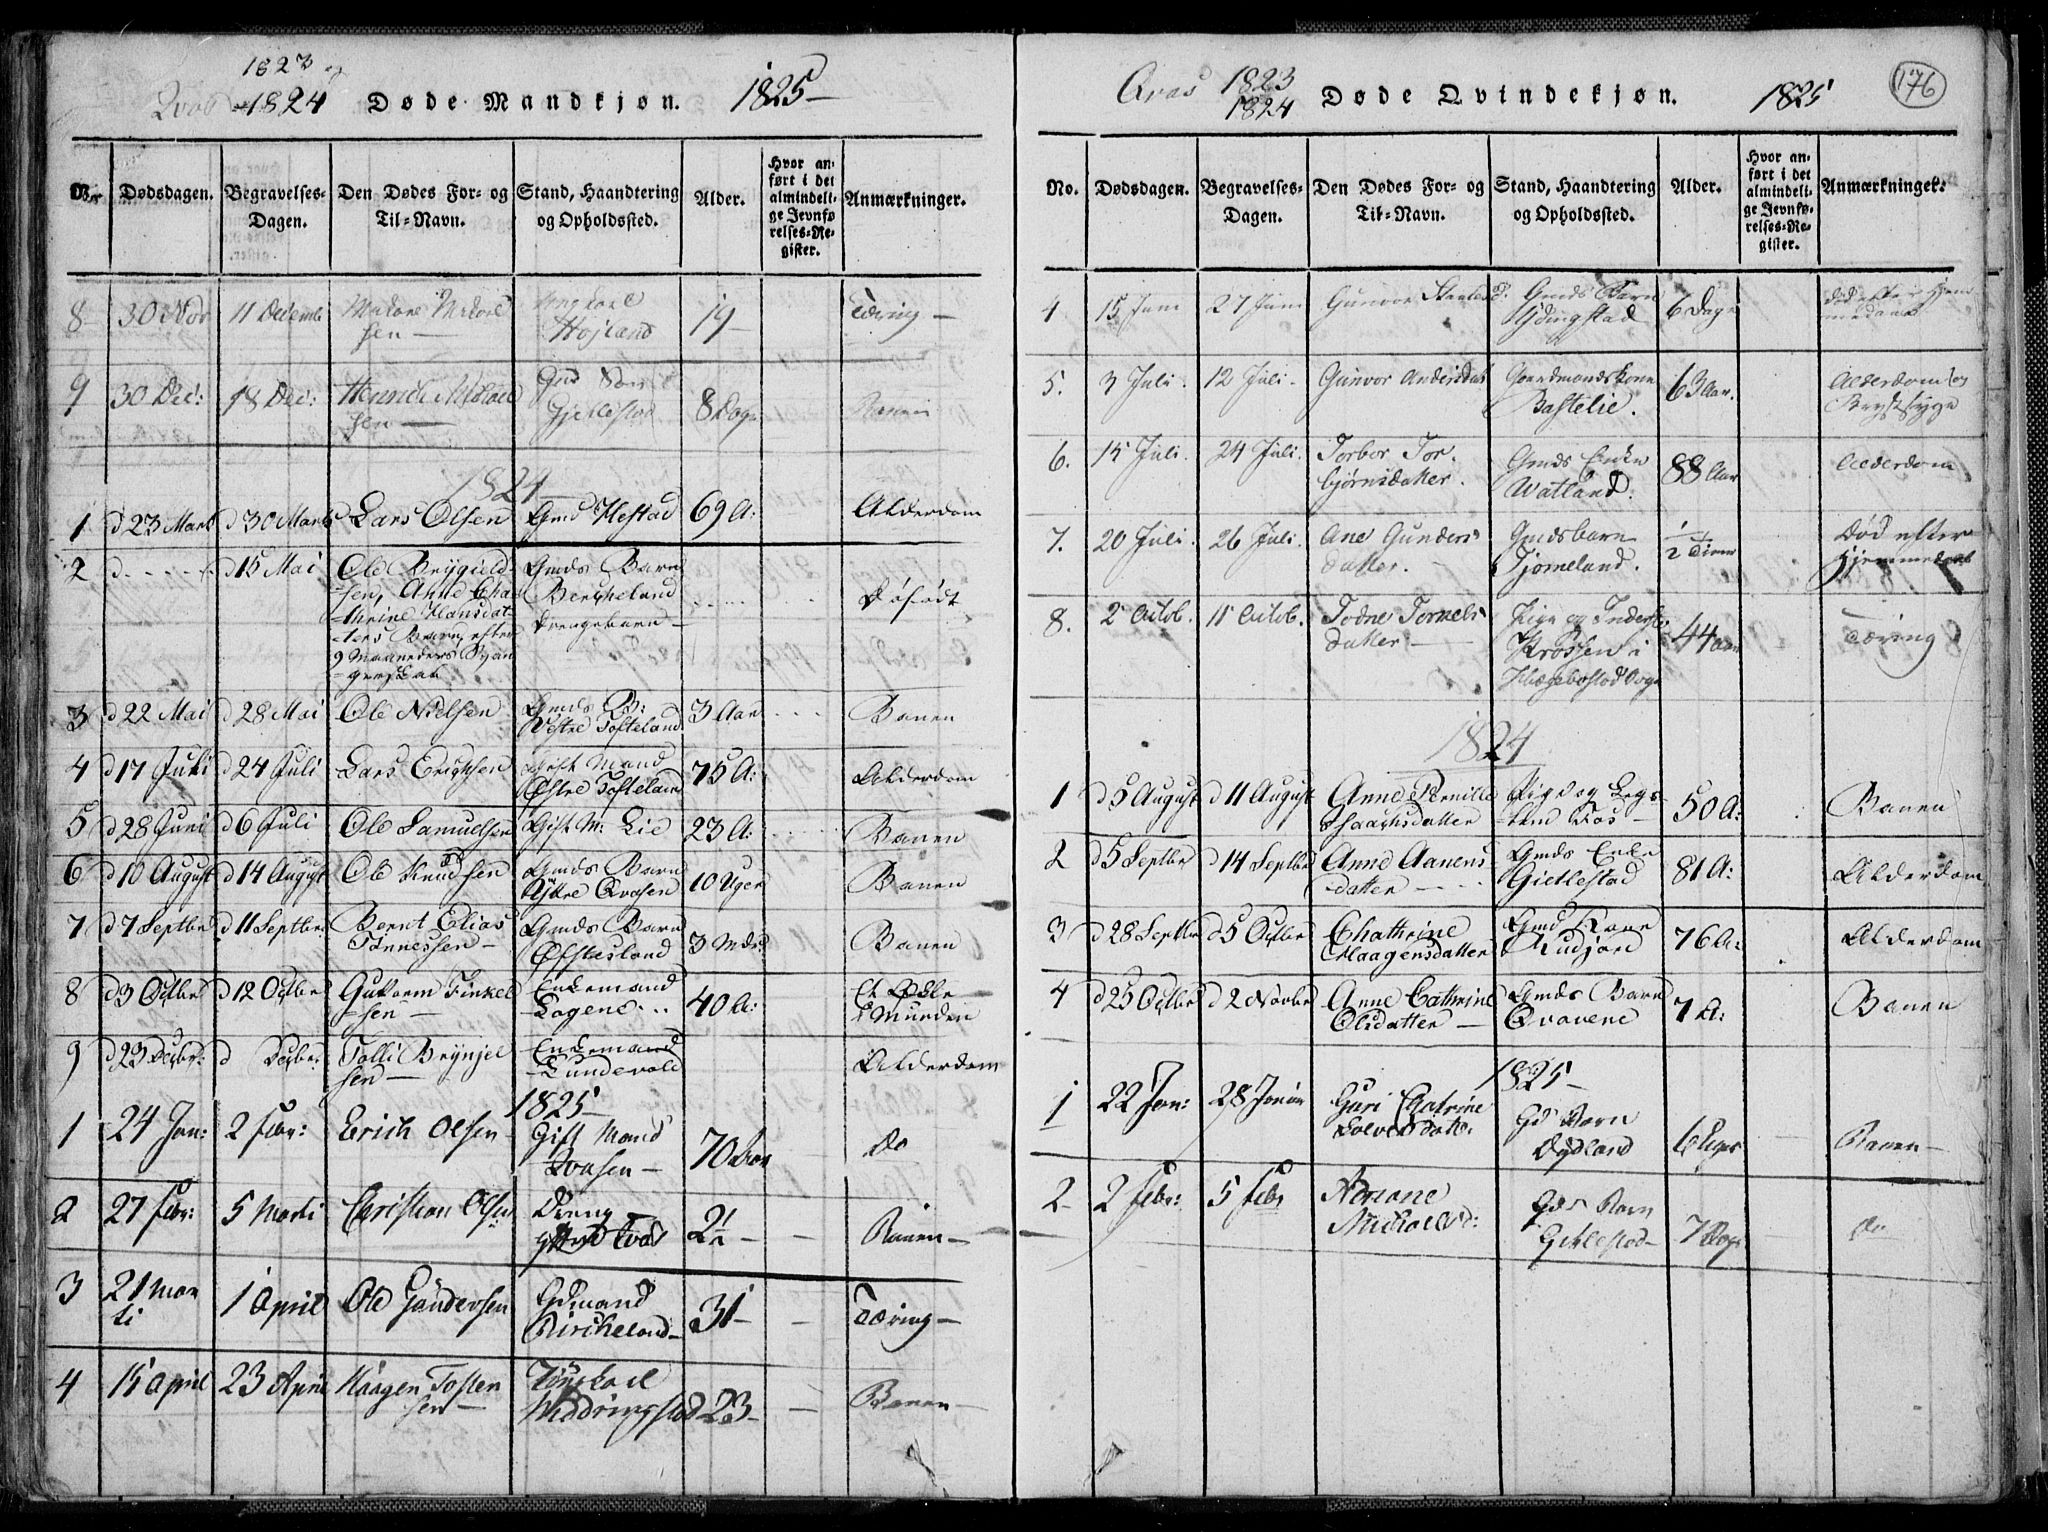 1823
1824 Døde Mandkjøn. 1825
No. Dødsdagen. Begravelses-Dagen. Den Dødes For- og Til-Navn. Stand, Haandtering og Opholdssted. Alder. Hvor anført i det almindelige Jevnførelses-Register. Anmærkninger.
8 30 Nov 11 Decemb Højland 19 Tæring
9 30 Dec: 18 Dec: Gjetlestad 8 Dage Banen
1824
1 d 23 Marts d 30 Marts Lars Olsen Gmd Hestad 69 A: Alderdom
2 d d 15 Mai Ole Brÿgields-
sen, Anne Cha- Gmds Barn
thrine Hansdat- Bercheland
ters Barn efter Drengebarn Døfødt
9 Maaneders Svan-
gerskab
3 d 22 Mai d 28 Mai Ole Nielsen Gmds B: Vestre Tofteland 3 Aar Banen
4 d 17 Juli d 24 Juli Lars Erichsen Gift Mand Østre Tofteland 75 A: Alderdom
5 d 28 Juni d 6 Juli Ole Samuelsen Gift M: Lie 23 A: Banen
6 d 10 August d 14 August Ole Knudsen Gmds Barn Qvasen 10 Uger Banen
7 d 7 Septbr d 11 Septbr. Bernt Elias Tønnessen Gmds Barn Øfstesland 3 Mdr: Banen
8 d 3 Octbr d 12 Octbr Guttorm Finkelsen Enkemand 40 A:
9 d 23 Decbr: d Decbr: Tolli Brÿnjelsen Enkemand Lundevold Alderdom
1825
1 24 Jan: 2 Febr: Erich Olsen Gift Mand Qvasen 70 Aar do
2 27 Febr: 5 Marti Christian Olsen Dreng Banen
3 21 Marti 1 April Ole Gundersen Gdmand Bircheland 31 Tæring
4 15 April 23 April Haagen Tostensen 23 Banen
1823
1824 Døde Qvindekjøn. 1825 176
No. Dødsdagen. Begravelses-Dagen. Den Dødes For- og Til-Navn. Stand, Haandtering og Opholdssted. Alder. Hvor anført i det almindelige Jevnførelses-Register. Anmærkninger.
4 15 Juni 27 Juni Gunvor Gmds Barn 6 Dage
5. 3 Juli. 12 Juli Gunvor Andersdat Gaardmandskone Bastelie. 63 Aar. Alderdom og Brystsyge
6. 15 Juli. 24 Juli. Torbor Torbjørnsdatter. Gmds Enke Watland. 88 Aar Alderdom
7. 20 Juli. 26 Juli. Ane Gundersdatter. Gmdsbarn Tjomeland. 1/2 Time Død efter Hjemmedaab
8. 2 Octob. 11 Octob. Todne datter Krossen i Hægebostad Sogn 44 Aar Tæring
1824
1 d 5 August d 11 August Anne Pernille Isaachsdatter Pige og Legs- 50 A: Banen
2 d 5 Septbr d 14 Septbr Anne Aanensdatter Gmds Enke Gietlestad 81 A: Alderdom
3 d 28 Septbr d 5 Octbr Chathrine Haagensdatter Gmd Kone 76 A: Alderdom
4 d 25 Octbr d 2 Novbr Anne Cathrine Olsdatter Gmds Barn Qvavene 7 A: Banen
1825
1 22 Jan: 28 Januar Guri Chatrine Gd Barn Dydland 6 Uger Banen
2 2 Febr: 5 Febr Adriane Michaelsd: Gds Barn Gitlestad 7 Dage do